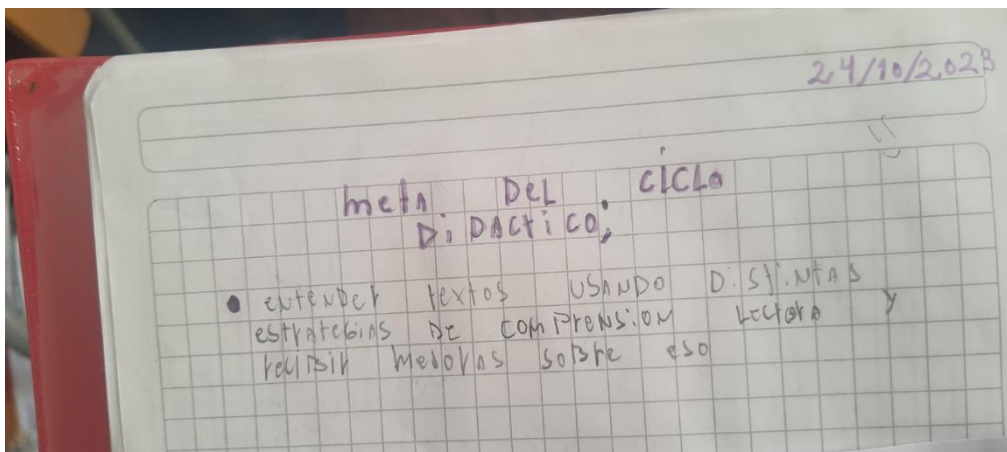 24/10/2023
metA DEL CICLO
DiDActico:
• entenDer textos USANDO DistiNtAS
estrAteGiAS DE comPreNSiON Lectora y
reciBir MeJorAS soBre eso